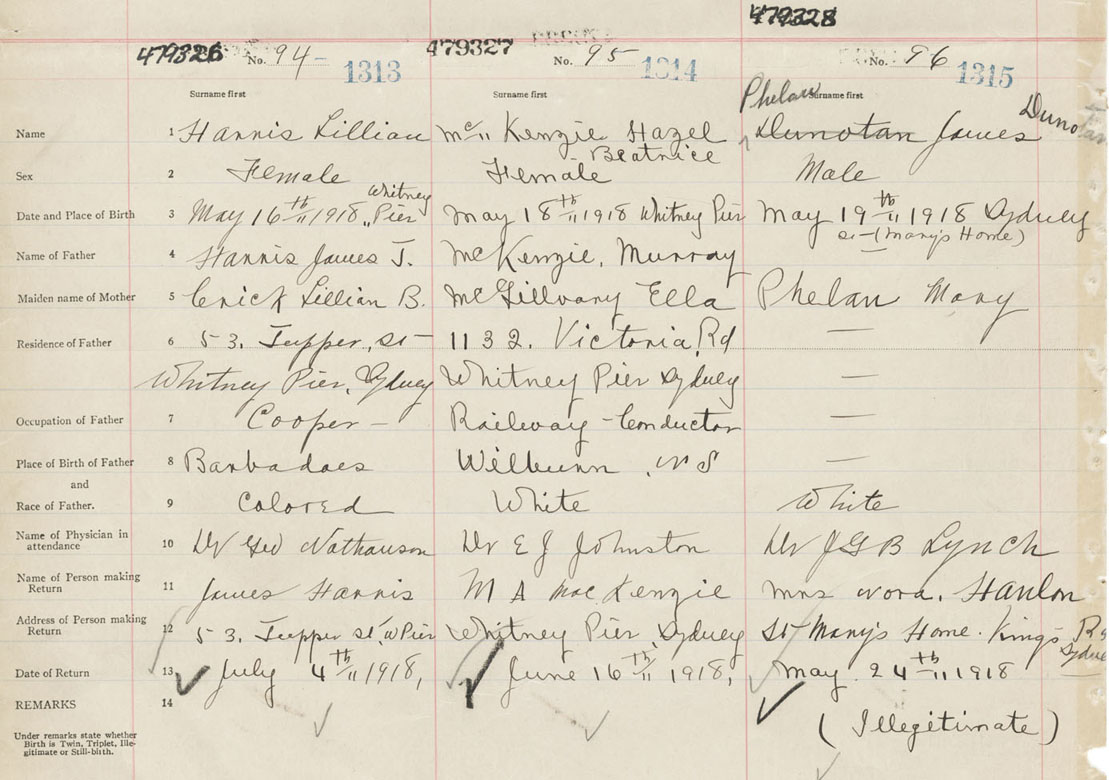 479328
479326 No. 94- 1313 479327 No. 95 1314 No. 96 1315
Surname first Surname first Phelan Surname first
Name 1 Harris Lillian McKenzie Hazel Dunotan James Dunotan
Beatrice
Sex 2 Female Female Male
Whitney
Date and Place of Birth 3 May 16th 1918, Pier May 18th 1918 Whitney Pier May 19th 1918 Sydney
St-(Mary's Home)
Name of Father 4 Harris James J. McKenzie, Murray —
Maiden name of Mother 5 Crick Lillian B. McGillvary Ella Phelan Mary
Residence of Father 6 53, Tupper, St- 1132. Victoria, Rd —
Whitney Pier, Sydney Whitney Pier Sydney —
Occupation of Father 7 Cooper - Railway - Conductor —
Place of Birth of Father 8 Barbadoes Wilburn, NS —
and
Race of Father. 9 Colored White White
Name of Physician in
attendance 10 Dr Geo Nathanson Dr E J Johnston Dr JGB Lynch
Name of Person making
Return 11 James Harris M A MacKenzie Mrs Nora. Hanlon
Address of Person making
Return 12 53. Tupper St, W Pier Whitney Pier, Sydney St Mary's Home. Kings Rd
Sydney
Date of Return 13 July 4th 1918, June 16th 1918, May 24th 1918
REMARKS 14 (Illegitimate)
Under remarks state whether
Birth is Twin, Triplet, Ille-
gitimate or Still-birth.